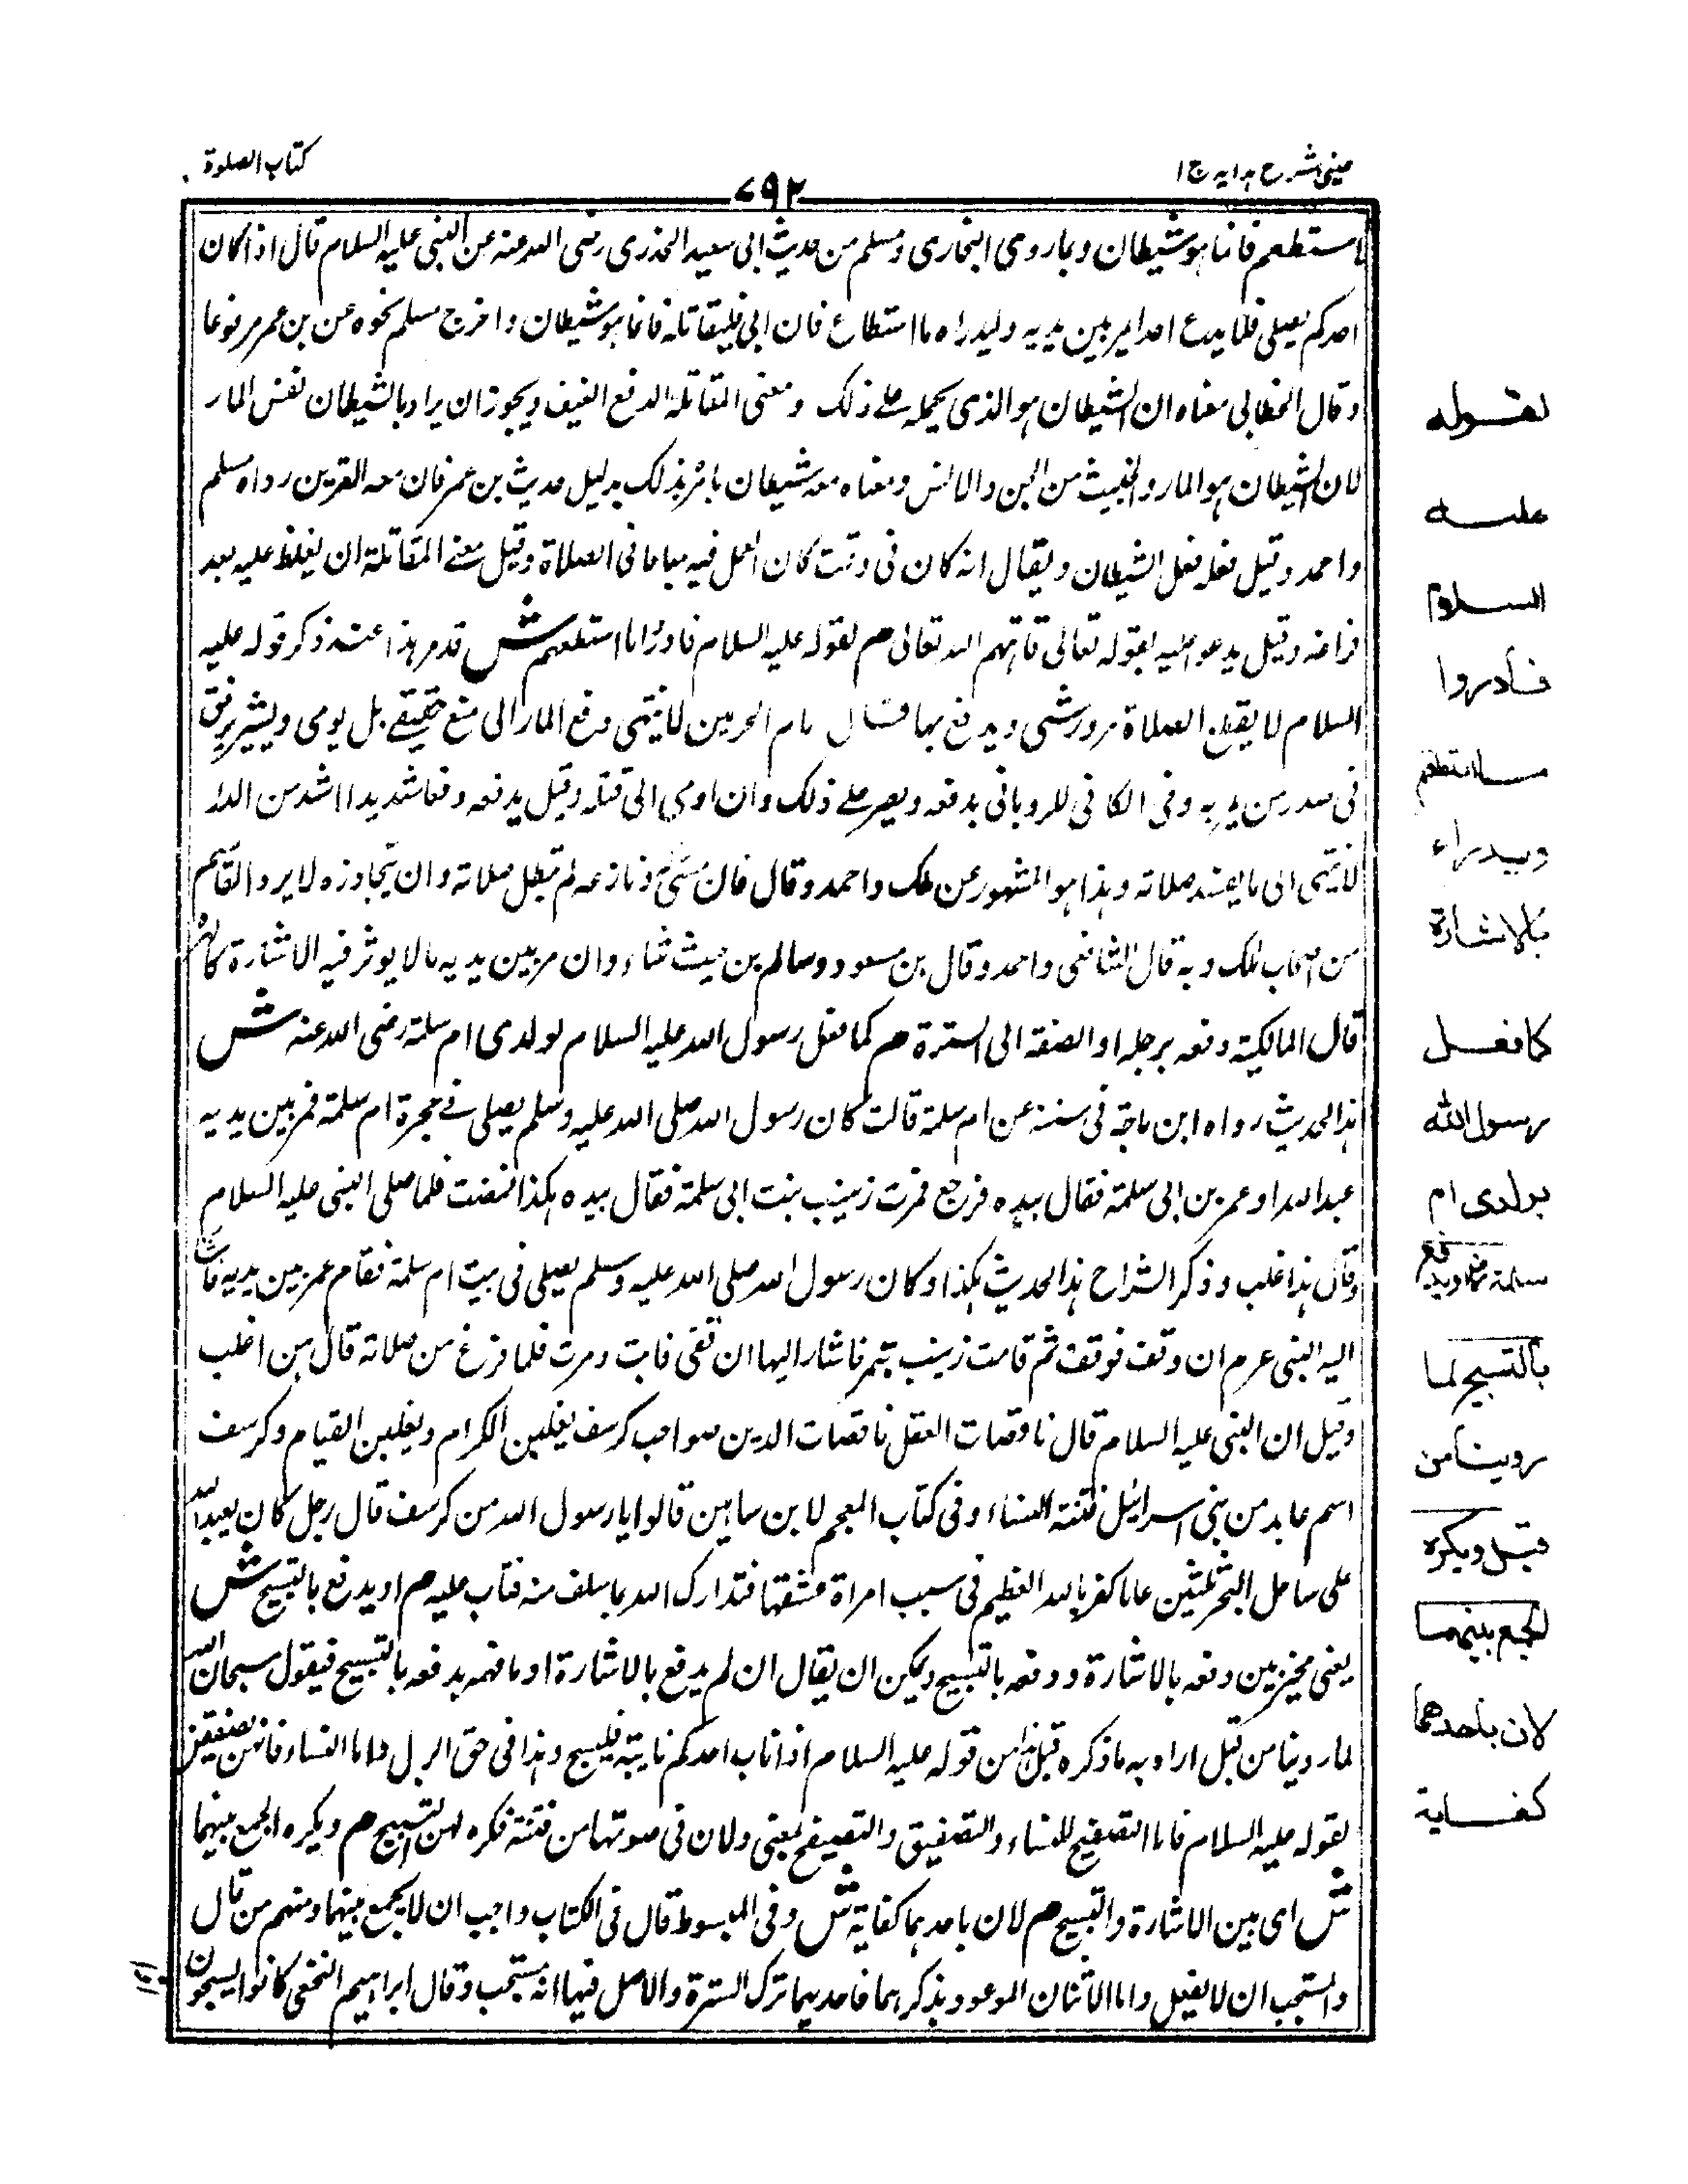 عینی شرح ہدایہ ج ۱
۷۹۲
کتاب الصلوۃ
ما استطعتم فانما ہو شیطان وبما روی البخاری ومسلم من حدیث ابی سعید الخدری رضی اللہ عنہ عن النبی علیہ السلام قال اذا کان
احدکم یصلی فلا یدع احدا یمر بین یدیہ ولیدراہ ما استطاع فان ابی فلیقاتلہ فانما ہو شیطان واخرج مسلم نحوہ عن بن عمر مرفوعا
وقال الخطابی معناہ ان الشیطان ہو الذی یحملہ علے ذلک ومعنی المقاتلۃ الدفع العنیف ویجوز ان یراد بالشیطان نفس المار
لان الشیطان ہو المارد الخبیث من الجن والانس ومعناہ معہ شیطان یامرہ بذلک بدلیل حدیث بن عمر فان معہ القرین رواہ مسلم
واحمد وقیل فعلہ فعل الشیطان ویقال انہ کان فی وقت کان العمل فیہ مباحا فی الصلاۃ وقیل معنے المقاتلۃ ان یغلظ علیہ بعد
فراغہ وقیل یدعو علیہ بقولہ تعالی قاتلہم اللہ تعالی م لقولہ علیہ السلام فادرؤا ما استطعتم ش قد مر ہذا عند ذکر قولہ علیہ
السلام لا یقطع الصلاۃ مرور شی ویدفع بہا قال امام الحرمین لا ینتہی دفع المار الی منع حقیقے بل یومی ویشیر برفق
فی صدر من یمر بہ وفی الکافی للرویانی یدفعہ ویصر علے ذلک وان اومی الی قتلہ وقیل یدفعہ دفعا شدیدا اشد من الدرء
لا ینتہی الی ما یفسد صلاتہ وہذا ہو المشہور عن ملک واحمد وقال فان مشی ونازعہ لم تبطل صلاتہ وان یتجاوزہ لا یردہ القاسم
من اصحاب ملک وبہ قال الشافعی واحمد وقال بن مسعود وسالم من حیث شاء وان مر بین یدیہ مالا یوثر فیہ الاشارۃ کالہر
قال المالکیۃ دفعہ برجلہ او الصقہ الی السترۃ م کما فعل رسول اللہ علیہ السلام لولدی ام سلمۃ رضی اللہ عنہ ش
ہذا الحدیث رواہ ابن ماجۃ فی سننہ عن ام سلمۃ قالت کان رسول اللہ صلی اللہ علیہ وسلم یصلی فے حجرۃ ام سلمۃ فمر بین یدیہ
عبد اللہ او عمر بن ابی سلمۃ فقال بیدہ فرجع فمرت زینب بنت ابی سلمۃ فقال بیدہ ہکذا فمضت فلما صلی النبی علیہ السلام
وقال ہذا اغلب وذکر الشراح ہذا الحدیث ہکذا وکان رسول اللہ صلی اللہ علیہ وسلم یصلی فی بیت ام سلمۃ فقام عمر بین یدیہ فاشار
الیہ النبی عرم ان وقف فوقف ثم قامت زینب تمر فاشار الیہا ان تقفی فابت ومرت فلما فرغ من صلاتہ قال ہن اغلب
وقیل ان النبی علیہ السلام قال ناقصات العقل ناقصات الدین صواحب کرسف یغلبن الکرام ویغلبن القیام وکرسف
اسم عابد من بنی اسرائیل فتنتہ النساء وفی کتاب المعجم لابن ساہین قالوا یا رسول اللہ من کرسف قال رجل کان یعبد اللہ
علی ساحل البحر ثلثین عاما کفر باللہ العظیم فی سبب امراۃ عشقہا فتدارک اللہ بما سلف منہ فتاب علیہ م او یدفع بالتسبیح ش
یعنی مخیر بین دفعہ بالاشارۃ ودفعہ بالتسبیح ویمکن ان یقال ان لم یدفع بالاشارۃ او ما فہمہ یدفعہ بالتسبیح فیقول سبحان اللہ
لما روینا من قبل اراد بہ ما ذکرہ قبل ہذا من قولہ علیہ السلام اذا ناب احدکم نایبۃ فلیسبح وہذا فی حق الرجل واما النساء فانہن یصفقن
لقولہ علیہ السلام فاما التصفیح للنساء والتصفیق والتصفیح بمعنی ولان فی صوتہا من فتنۃ فکرہ لہن التسبیح م ویکرہ الجمع بینہما
ش ای بین الاشارۃ والتسبیح م لان باحدہما کفایۃ ش وفی المبسوط قال فی الکتاب واجب ان لا یجمع بینہما ومنہم من قال
والمستحب ان لا یفعل واما الاثنان الموعود بذکرہما فاحدہما ترک السترۃ والاصل فیہا انہ مستحب وقال ابراہیم النخعی کانوا یستحبون
لقوله
عليه
السلام
فادروا
ما استطعتم
ويدراء
بالاشارة
كما فعل
رسول الله
بولدى ام
سلمة او يدفع
بالتسبيح لما
روينا من
قبل ويكره
الجمع بينهما
لان باحدهما
كفاية